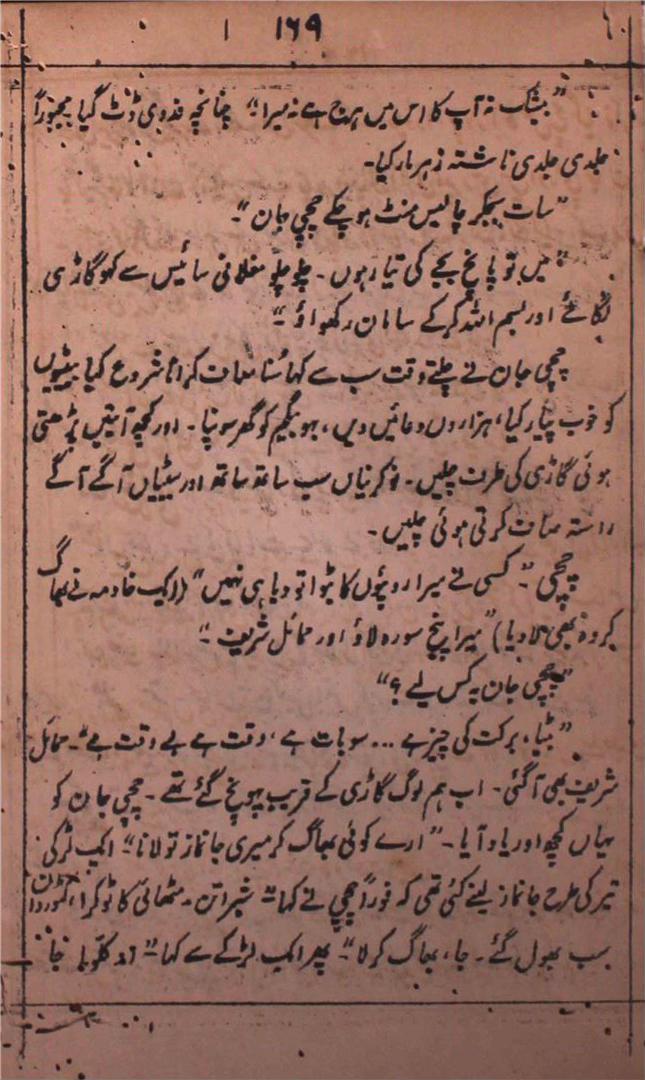 ۱۶۹
”بیشک نہ آپ کا اس میں ہرج ہے نہ میرا“ چنانچہ فدوی ڈٹ گیا مجبوراً
جلدی جلدی ناشتہ زہر مار کیا۔
”سات بجکر چالیس منٹ ہو چکے چچی جان“۔
”میں تو پانچ بجے کی تیار ہوں۔ چلو چلو مغلانی سائیس سے کہو گاڑی
لگائے اور بسم اللہ کرکے سامان رکھواؤ“۔
چچی جان نے چلتے وقت سب سے کہا سُنا معاف کرانا شروع کیا بیٹیوں
کو خوب پیار کیا، ہزاروں دعائیں دیں، بہو بیگم کو گھر سونپا۔ اور کچھ آیتیں پڑھتی
ہوئی گاڑی کی طرف چلیں۔ نوکرنیاں سب ساتھ ساتھ اور بیٹیاں آگے آگے
راستہ صاف کرتی ہوئی چلیں۔
چچی”۔ کسی نے میرا روپئوں کا بٹوا تو دیا ہی نہیں“ (ایک خادمہ نے بھاگ
کر وہ بھی لا دیا) ”میرا پنج سورہ لاؤ اور حمائل شریف“۔
”چچی جان یہ کس لیے؟“
”بٹیا، برکت کی چیز ہے ... سو بات ہے، وقت ہے بے وقت ہے“۔ حمائل
شریف بھی آگئی۔ اب ہم لوگ گاڑی کے قریب پہونچ گئے تھے۔ چچی جان کو
یہاں کچھ اور یاد آیا۔ ”ارے کوئی بھاگ کر میری جانماز تو لانا“ ایک لڑکی
تیر کی طرح جانماز لینے گئی تھی کہ فوراً چچی نے کہا ”شبراتن۔ مٹھائی کا ٹوکرا،
سب بھول گئے۔ جا، بھاگ کر لا“۔ پھر ایک لڑکے سے کہا ”کلوا جا